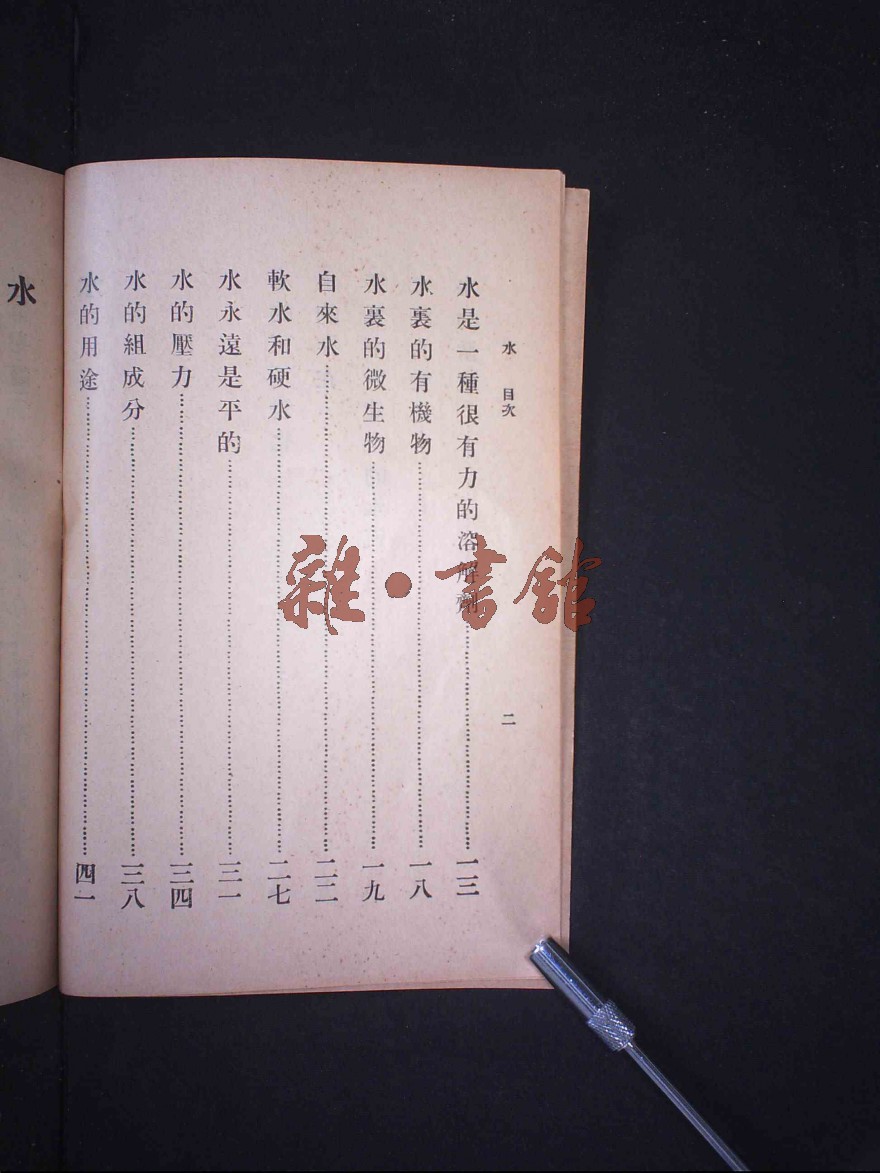 水 目次
二
水是一種很有力的溶解劑 一三
水裏的有機物 一八
水裏的微生物 一九
自來水 二二
軟水和硬水 二七
水永遠是平的 三一
水的壓力 三四
水的組成分 三八
水的用途 四一
水
雜·書館